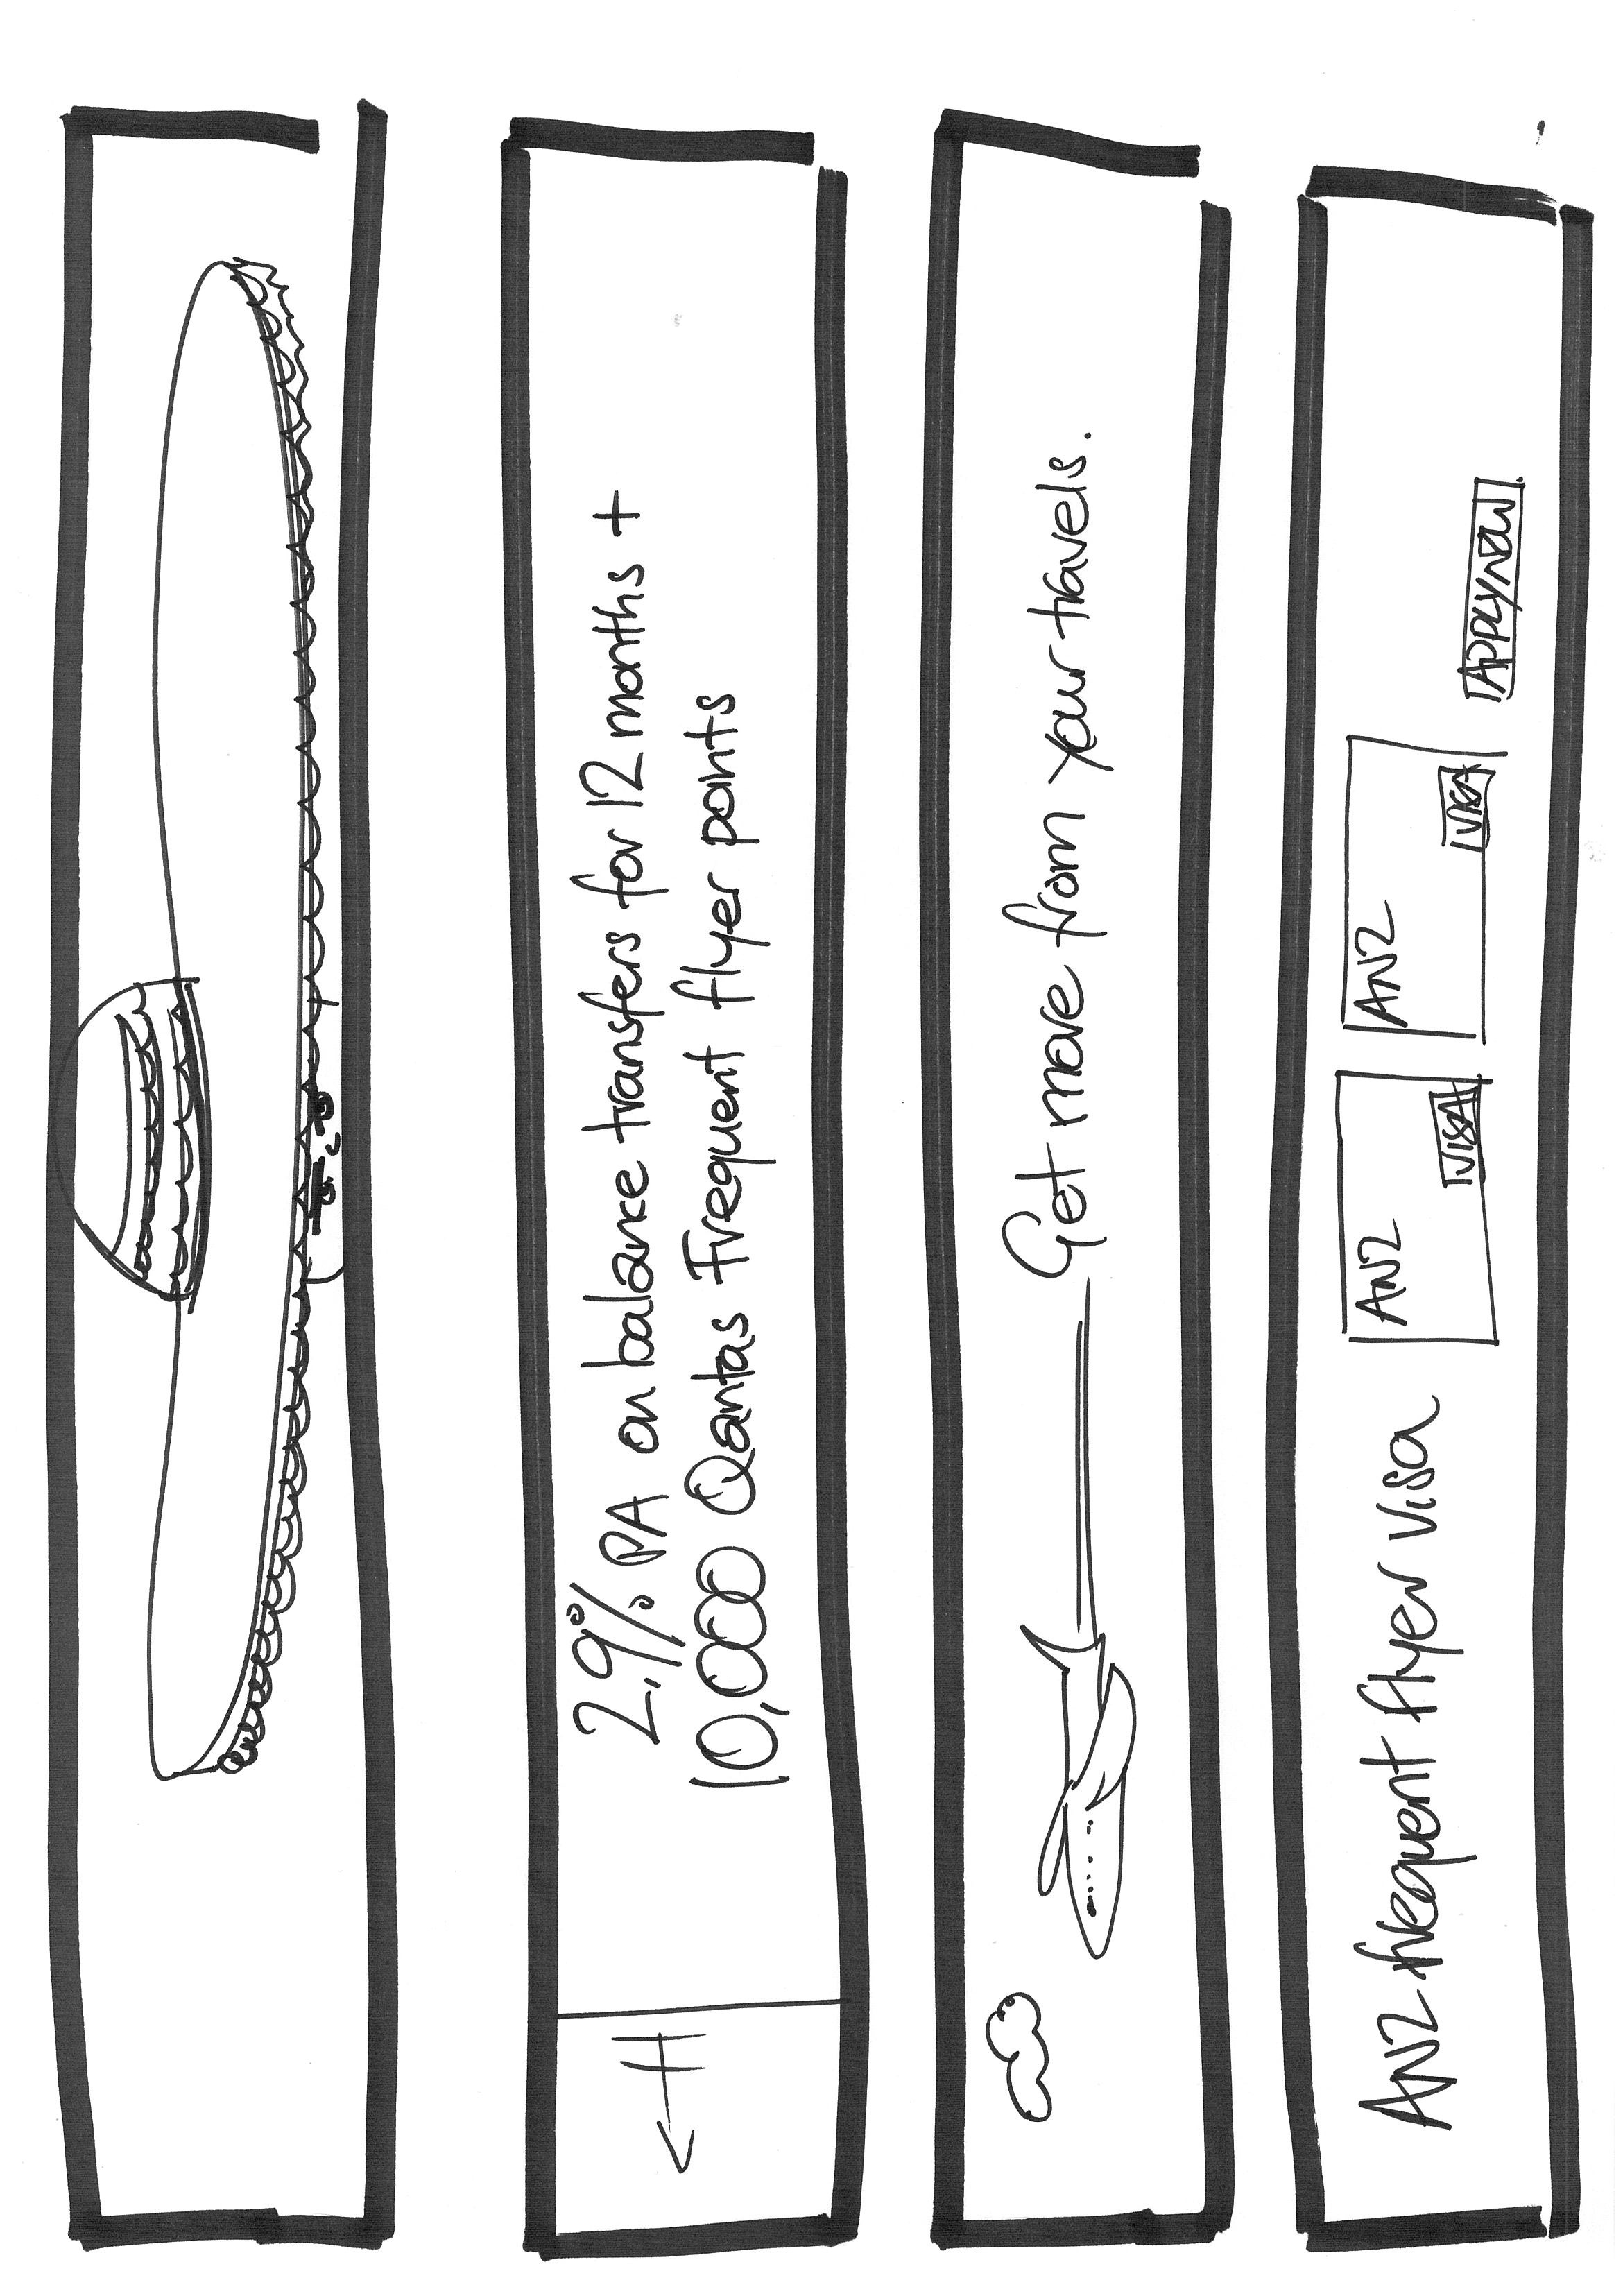 2.9% PA on balance transfers for 12 months +
10,000 Qantas Frequent flyer points
Get more from your travels.
ANZ frequent flyer visa
ANZ
VISA
ANZ
VISA
APPLY NOW